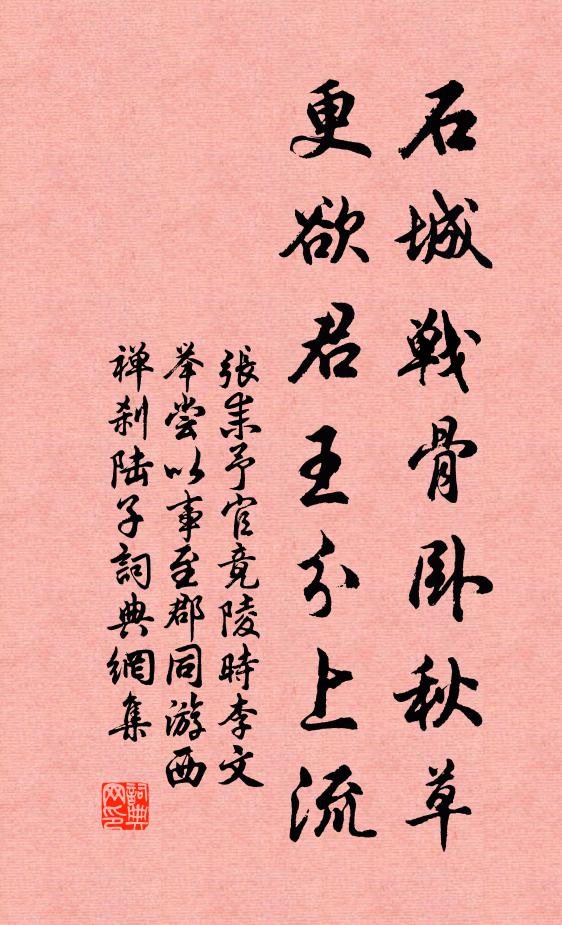 石城戦骨卧秋草
更欲君王分上流
張耒予官竟陵時李文
举尝以事至郡同游西
禅刹陆子詞典網集
詞典网印